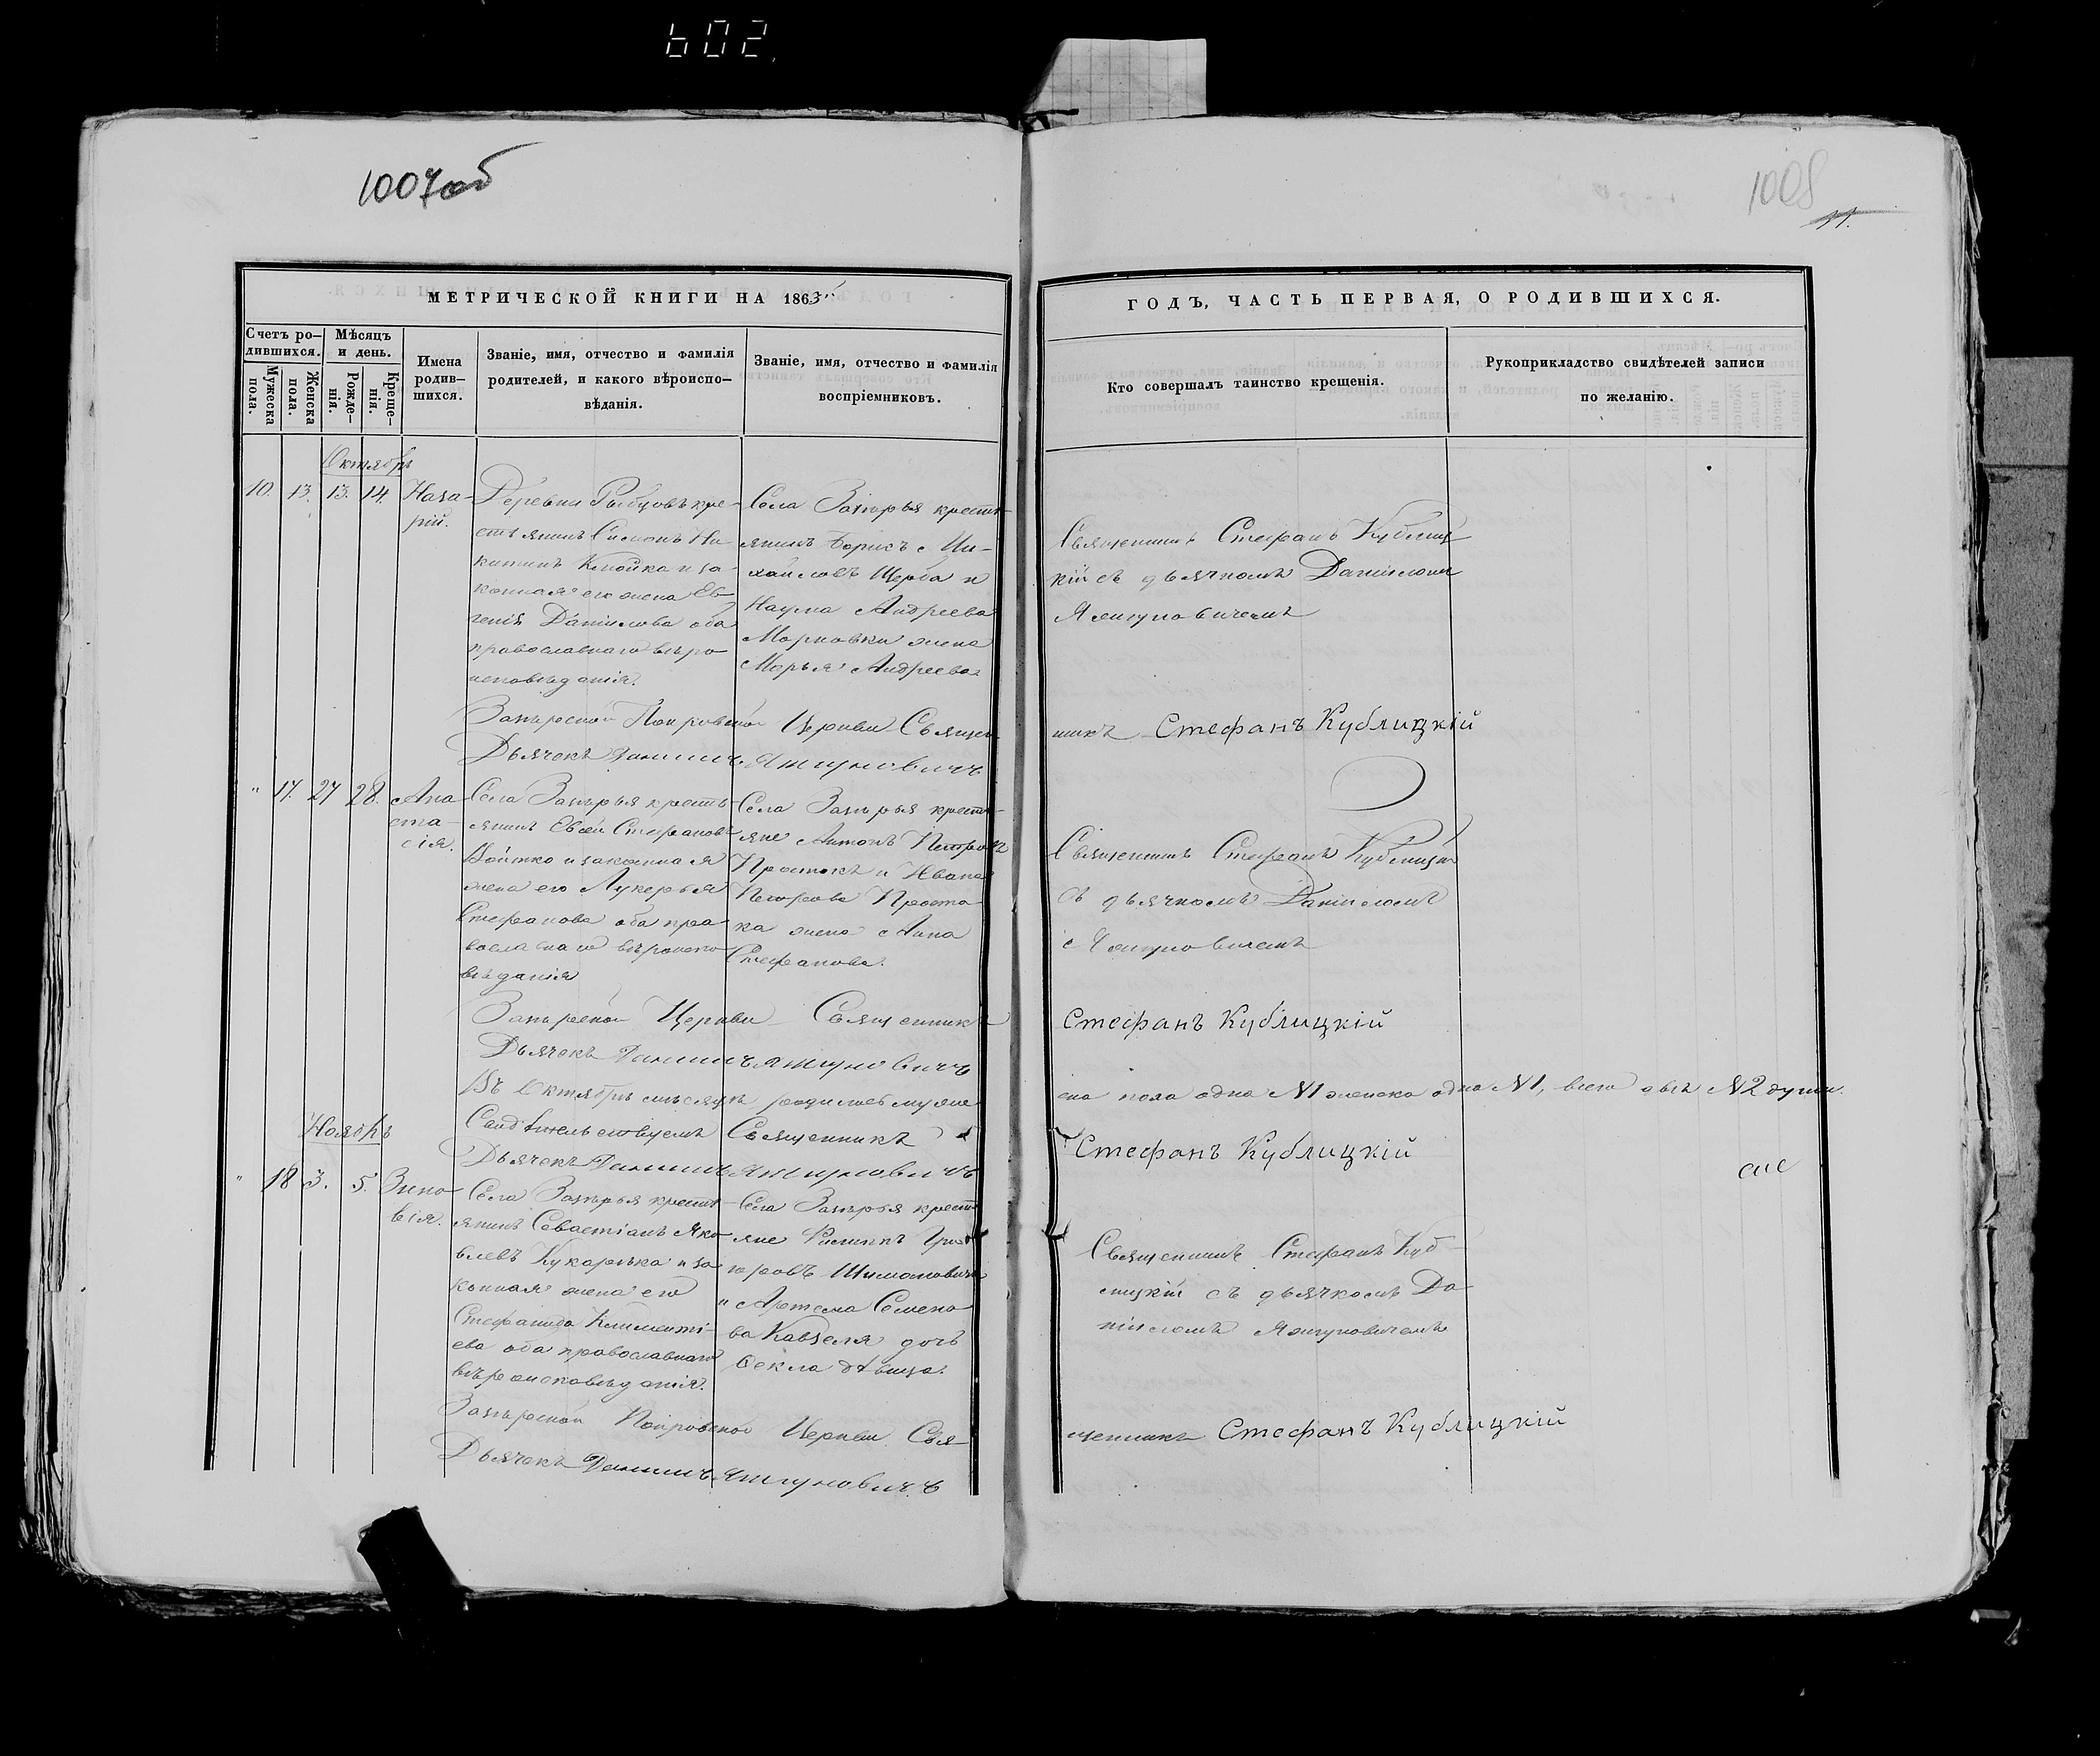 602
1007об
1008
11.
МЕТРИЧЕСКОЙ КНИГИ НА 1863
ГОДЪ, ЧАСТЬ ПЕРВАЯ, О РОДИВШИХСЯ.
Счетъ ро-
дившихся.
Мужеска
пола.
Женска
пола.
Мѣсяцъ
и день.
Рожде-
нія.
Креще-
нія.
Имена
родив-
шихся.
Званіе, имя, отчество и фамилія
родителей, и какого вѣроиспо-
вѣданія.
Званіе, имя, отчество и фамилія
воспріемниковъ.
Кто совершалъ таинство крещенія.
Рукоприкладство свидѣтелей записи
по желанію.
Октябрь
10. 13. 13. 14.
Наза-
рій.
Деревни Рыбцовъ кре-
стьянинъ Симонъ Ни-
китинъ и за-
конная его жена Ев-
генія Даніилова оба
православнаго вѣро
исповѣданія.
Села Запѣрья кресть
янинъ Борисъ Ми-
хайловъ Щерба и
Наума Андреева
Марковки жена
Марья Андреева
Священникъ Стефанъ Кублиц-
кій съ дьячкомъ Даніиломъ
Яжгуновичемъ
Запѣрской Покровской Церкви Священ
никъ Стефанъ Кублицкій
Дьячокъ Даниилъ Яжгуновичъ
" 17. 27 28.
Ана
ста-
сія.
Села Запѣрья кресть-
янинъ Евсей Стефановъ
Войтко и законная
жена его Лукерья
Стефанова оба пра-
вославнаго вѣроиспо
вѣданія
Села Запѣрья кресть-
яне Антонъ Петровъ
Простокъ и Ивана
Петрова Просто-
ка жена Анна
Стефанова.
Священникъ Стефанъ Кублицкій
съ дьячкомъ Даніиломъ
Яжгуновичемъ
Запѣрской Церкви Священникъ
Стефанъ Кублицкій
Дьячокъ Даниилъ Яжгуновичъ
Въ Октябрѣ мѣсяцѣ родилось муже
ска пола одна №1 женска одна №1, всего двѣ №2 души.
Свидѣтельствуемъ Священникъ
Стефанъ Кублицкій
Дьячокъ Даниилъ Яжгуновичъ
Ноябрь
" 18 3. 5.
Зино-
вія.
Села Запѣрья кресть
янинъ Севастіанъ Яко-
влевъ Кукарѣка и за
конная жена его
Стефанида Климентi-
ева оба православнаго
вѣроисповѣданія.
Села Запѣрья кресть
яне Филиппъ Григо
рьевъ Шимановичъ
и Артема Семено
ва Кавзеля дочь
Ѳекла дѣвица.
Священникъ Стефанъ Куб-
лицкій съ дьячкомъ Да
ніиломъ Яжгуновичемъ
Запѣрской Покровской Церкви Свя-
щенникъ Стефанъ Кублицкій
Дьячокъ Даниилъ Яжгуновичъ